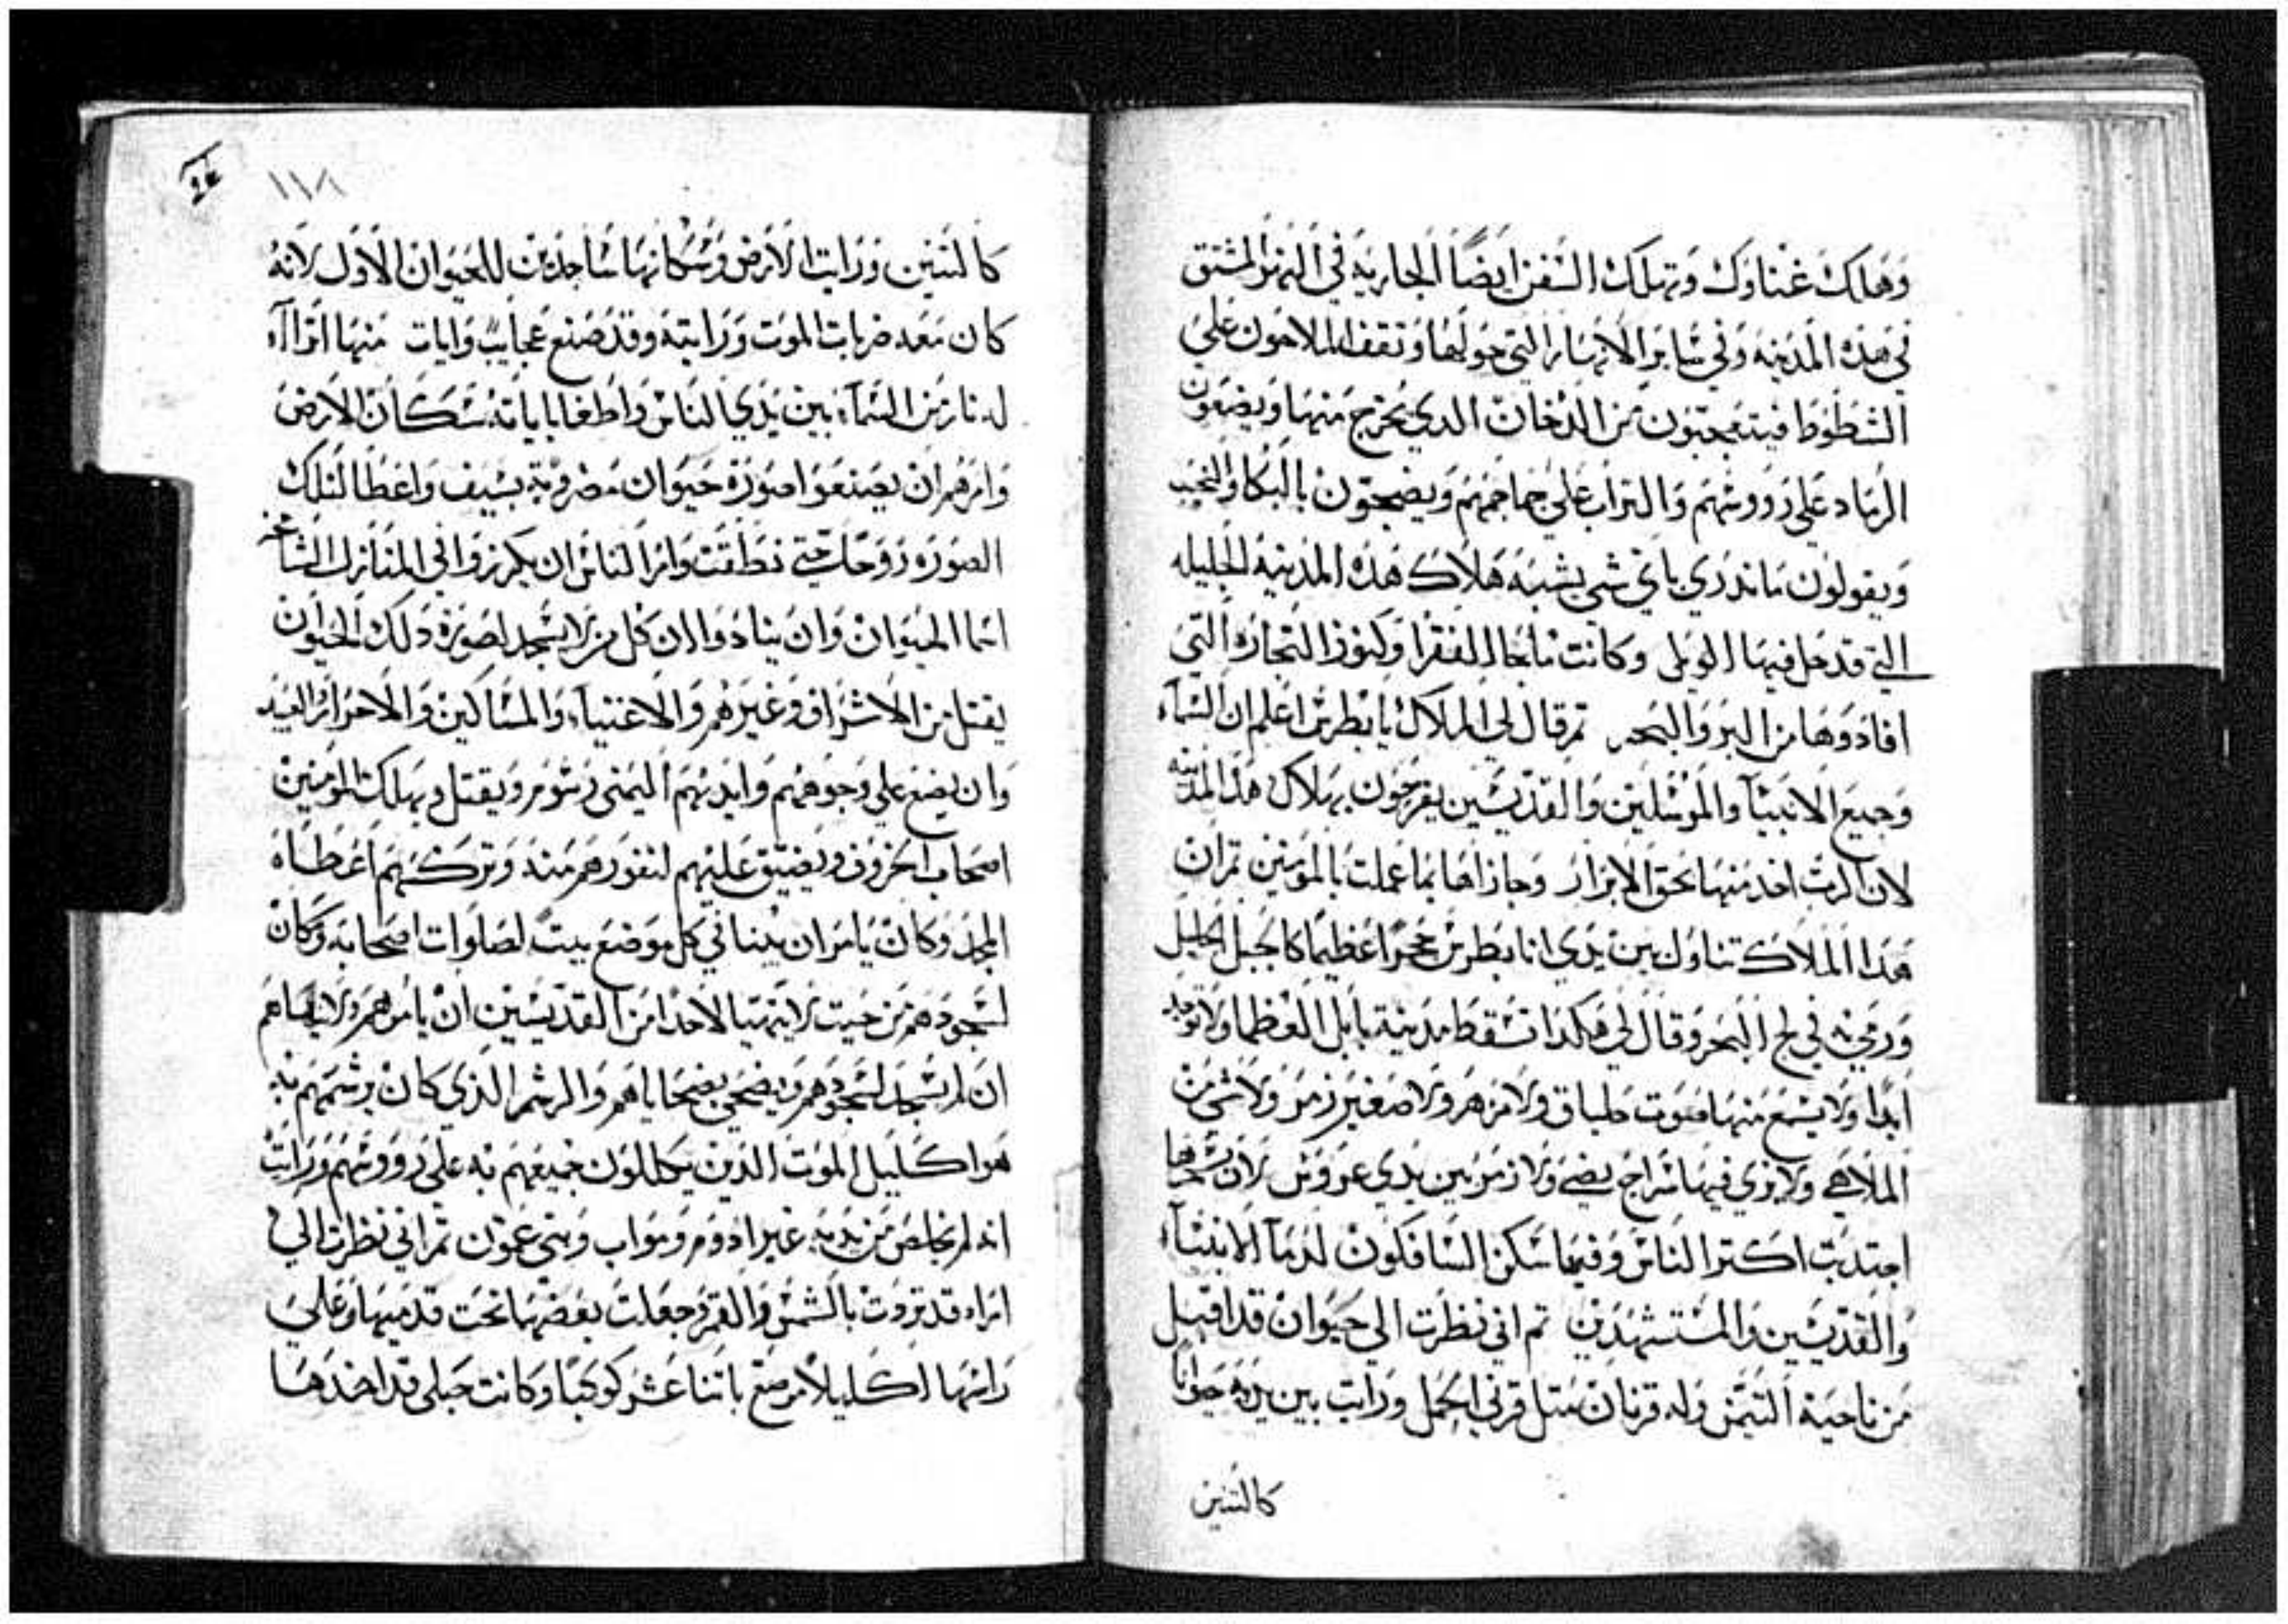 وهلك غناوك وتهلك السفن ايضا الجاريه في النهر المشتق
في هذه المدينه وفي ساير الانهار التي حولها وتقف الملاحون علي
الشطوط فيتعجبون من الدخان الدي يخرج منها ويضعون
الرماد علي رووسهم والتراب علي جماجمهم ويضجون بالبكا والنحيب
ويقولون ما ندري باي شي يشبه هلاك هده المدينه الجليله
التي قد حل فيها الويل وكانت ملجا للفقرا وكنوز التجاره التي
افادوها من البر والبحر تم قال لي الملاك يا بطرس اعلم ان السماء
وجميع الانبيا والمرسلين والقديسين يفرحون بهلاك هده المدينه
لان الرب اخد منها بحق الابرار وجازاها بما عملت بالمومنين تم ان
هدا الملاك تناول بين يدي انا بطرس حجرا عظيما كالجبل الجليل
ورمي به في لج البحر وقال لي هكدا تسقط مدينة بابل العظما ولا توجد
ابدا ولا يسمع منها صوت طباق ولا مزهر ولا صفير زمر ولا شي من
الملاهي ولا يري فيها سراج يضي ولا زمر بين يدي عروس لان سحرها
اجتدبت اكتر الناس وفيها سكن السافكون لدما الانبياء
والقديسين والمستشهدين تم اني نظرت الي حيوان قد اقبل
من ناحية التيمن وله قرنان متل قرني الحمل ورايت بين يديه حيوانا
كالتنين
١١٨
كالتنين ورايت الارض وسكانها ساجدين للحيوان الاول لانه
كان معه ضربات الموت ورايته وقد صنع عجايب وايات منها
له نار من السماء بين يدي الناس واطغا باياته سكان الارض
وامرهم ان يصنعوا صورة حيوان مضروبه بسيف واعطا لتلك
الصوره روحا حتي نطقت وامر الناس ان يكرزوا في المنازل الشامخه
اسما الحيوان وان ينادوا ان كل من لا يسجد لصورة دلك الحيوان
يقتل من الاشراف وغيرهم والاغنياء والمساكين والاحرار والعبيد
وان يضع علي وجوههم وايديهم اليمني رشوم ويقتل ويهلك المومنين
اصحاب الخروف ويضيق عليهم لنفورهم منه وتركهم اعطاه
المجد وكان يامر ان يبنا في كل موضع بيت لصلوات اصحابه وكان
لسجودهم من حيت لا يتهيا لاحد من القديسين ان يامرهم ولا ينهاهم
ان لم يسجد لسجودهم ويضحي بضحاياهم والرشم الدي كان يرشمهم به
هو اكليل الموت الدين يكللون جميعهم به علي رووسهم ورايت
انه لم يخلص من يديه غير ادوم ومواب وبني عمون تم اني نظرت الي
امراه قد تردت بالشمس والقمر جعلت بعضها تحت قدميها وعلي
راسها اكليلا مرصع باتنا عشر كوكبا وكانت حبلي قد اخدها